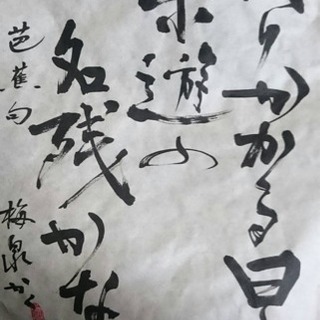 りかかる日
糸遊の
名残かな
芭蕉句
梅泉かく